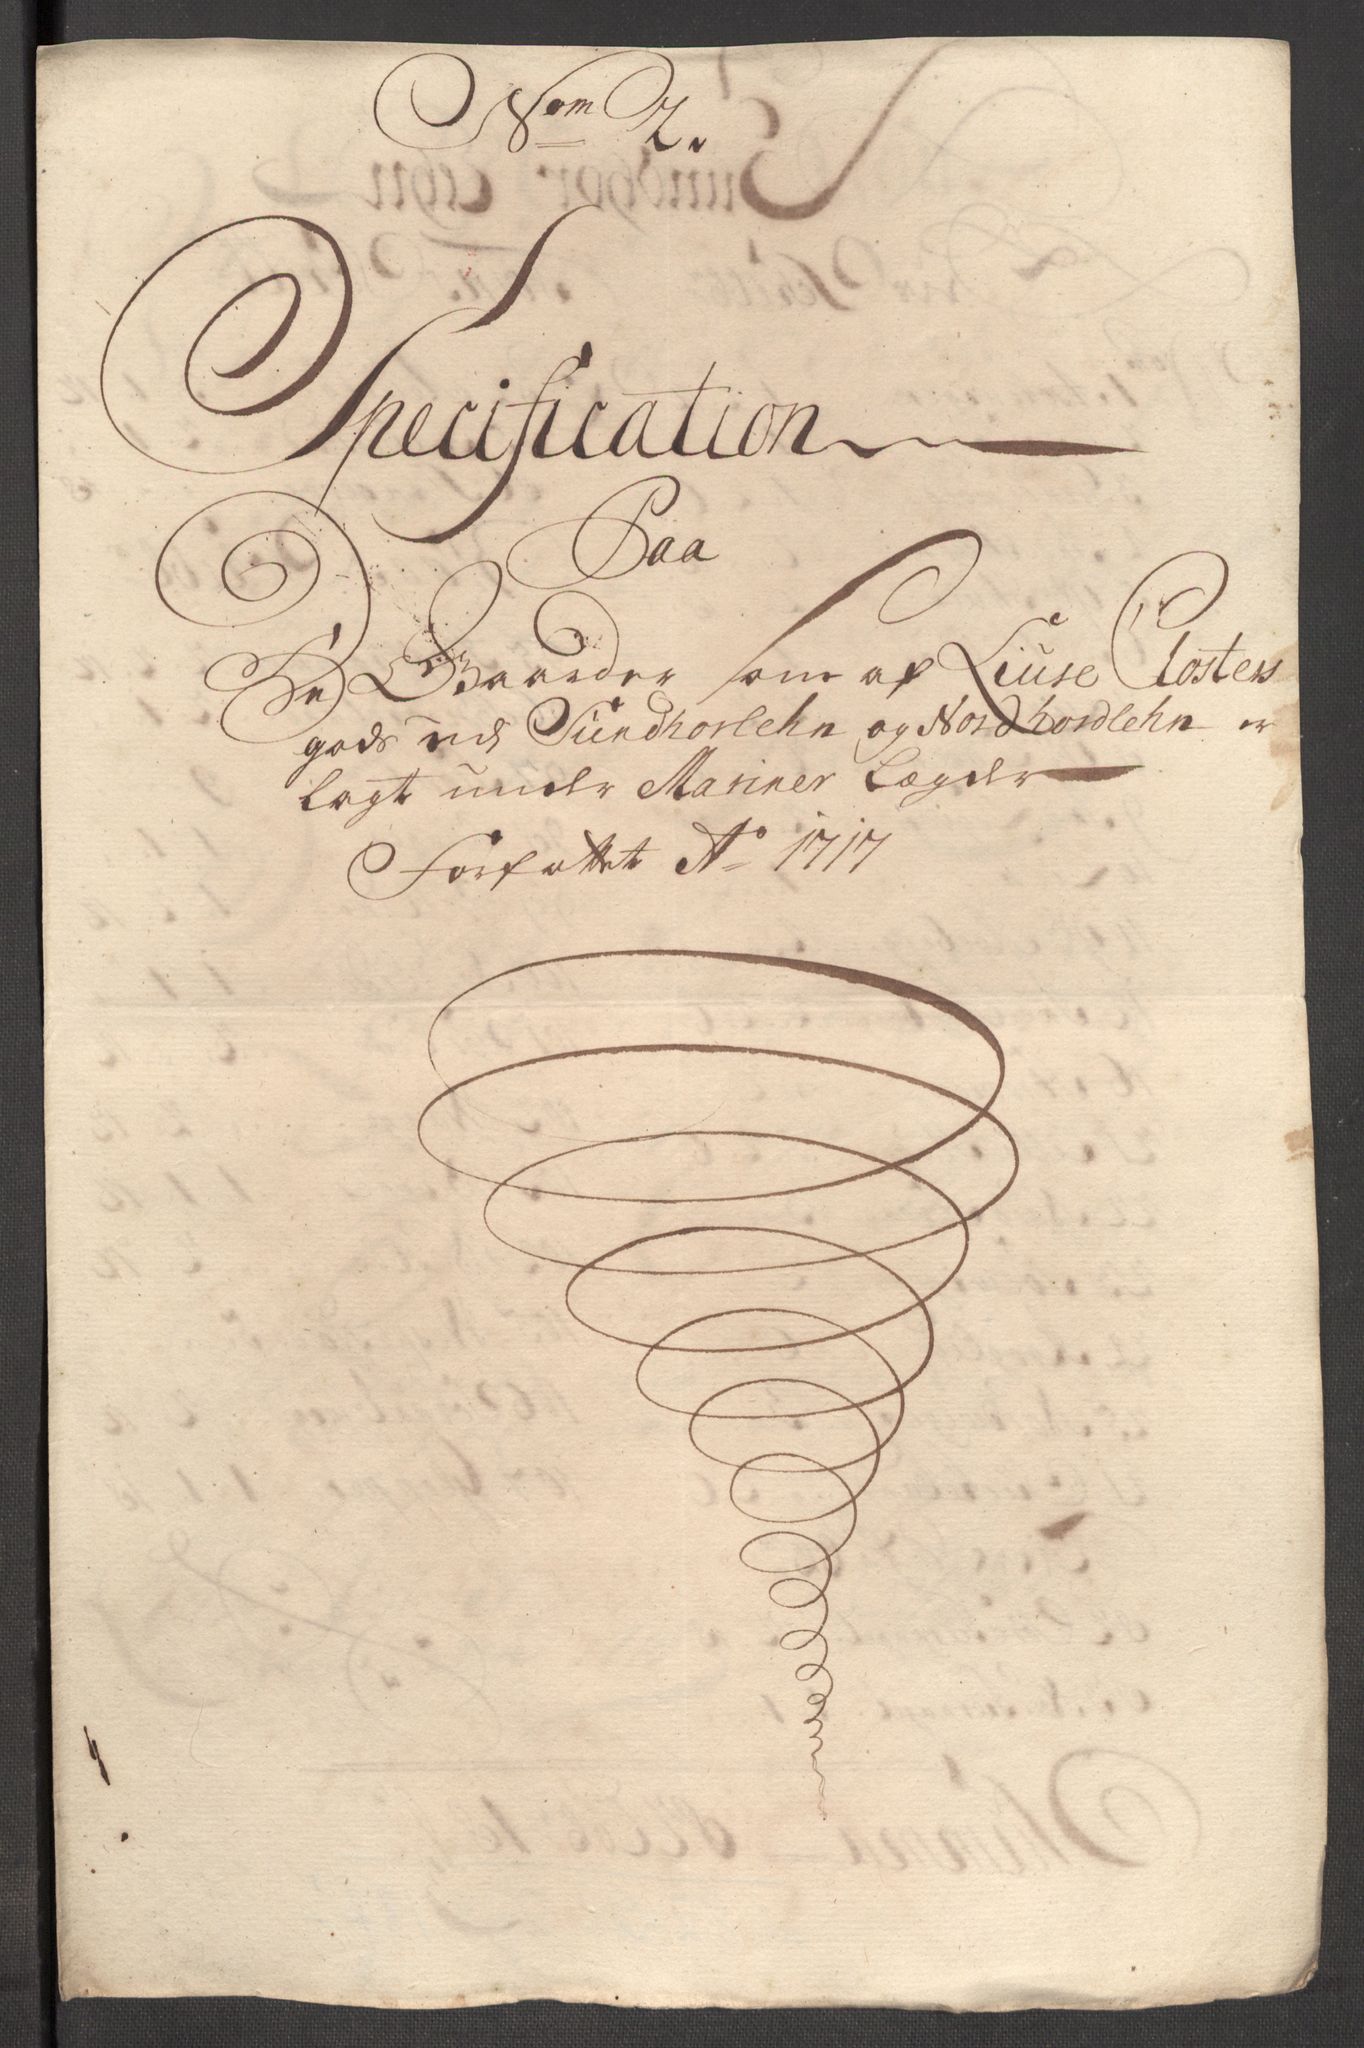 Nom 2.
Specification
Paa
De Gaarder som af Liuse Closters
gods udj Sundhorlehn og Nordhordlehn er
lagt under Mariner Lægder
Forfattet Ao 1717